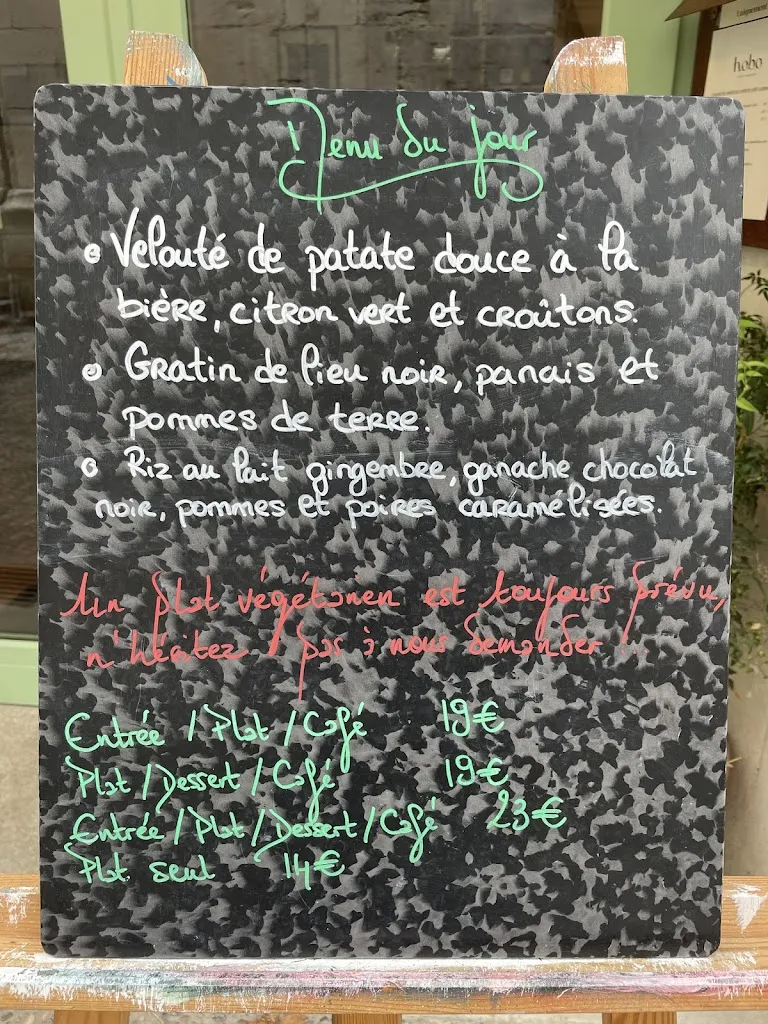 Menu du jour
• Velouté de patate douce à la
bière, citron vert et croûtons.
• Gratin de lieu noir, panais et
pommes de terre.
• Riz au lait gingembre, ganache chocolat
noir, pommes et poires caramélisées.
Un plat végétarien est toujours prévu,
n'hésitez pas à nous demander !
Entrée / Plat / Café 19€
Plat / Dessert / Café 19€
Entrée / Plat / Dessert / Café 23€
Plat seul 14€
hobo